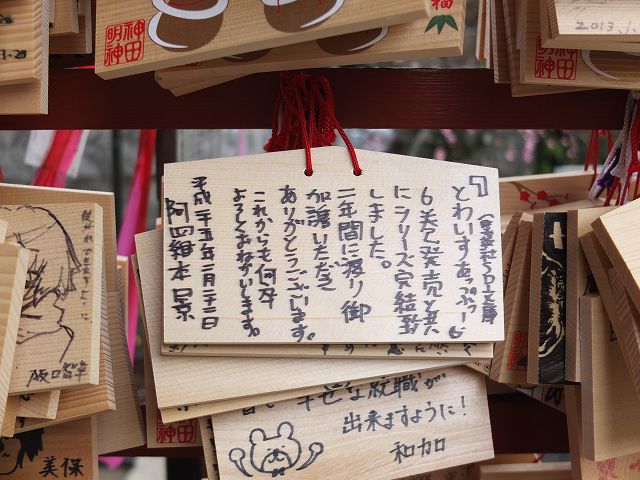 神田
明神
福
2013.1.
神田
明神
(集英社SD文庫)
『とわいすあっぷっ!』
6巻発売と共
にシリーズ完結致
しました。
二年間に渡り御
加護いただき
ありがとうございます。
これからも何卒
よろしくおねがいします。
平成二十五年二月二十二日
阿羅本 景
幸せな就職が
出来ますように!
和加
美保
神田